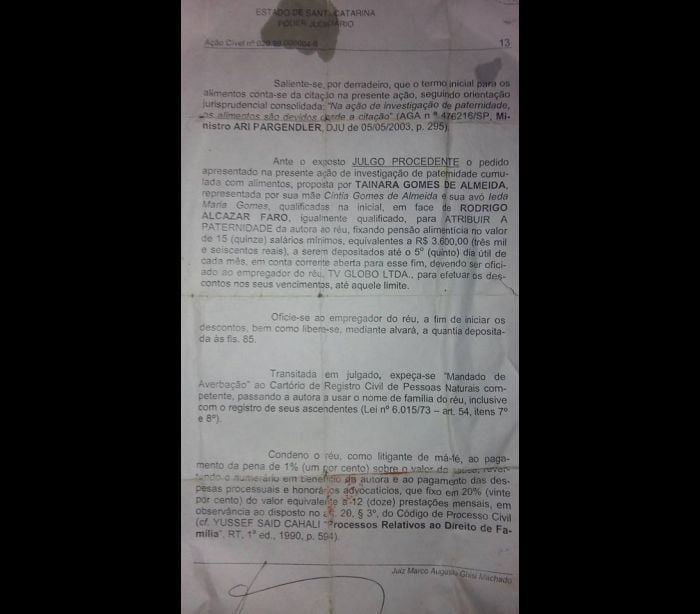 ESTADO DE SANTA CATARINA
PODER JUDICIÁRIO
Ação Cível nº 13
Saliente-se, por derradeiro, que o termo inicial para os
alimentos conta-se da citação na presente ação, seguindo orientação
jurisprudencial consolidada: "Na ação de investigação de paternidade,
os alimentos são devidos desde a citação" (AGA n º 476216/SP, Mi-
nistro ARI PARGENDLER, DJU de 05/05/2003, p. 295).
Ante o exposto JULGO PROCEDENTE o pedido
apresentado na presente ação de investigação de paternidade cumu-
lada com alimentos, proposta por TAINARA GOMES DE ALMEIDA,
representada por sua mãe Cíntia Gomes de Almeida e sua avó Ieda
Maria Gomes, qualificadas na inicial, em face de RODRIGO
ALCAZAR FARO, igualmente qualificado, para ATRIBUIR A
PATERNIDADE da autora ao réu, fixando pensão alimentícia no valor
de 15 (quinze) salários mínimos, equivalentes a R$ 3.600,00 (três mil
e seiscentos reais), a serem depositados até o 5º (quinto) dia útil de
cada mês, em conta corrente aberta para esse fim, devendo ser ofici-
ado ao empregador do réu, TV GLOBO LTDA., para efetuar os des-
contos nos seus vencimentos, até aquele limite.
Oficie-se ao empregador do réu, a fim de iniciar os
descontos, bem como libere-se, mediante alvará, a quantia deposita-
da às fls. 85.
Transitada em julgado, expeça-se "Mandado de
Averbação" ao Cartório de Registro Civil de Pessoas Naturais com-
petente, passando a autora a usar o nome de família do réu, inclusive
com o registro de seus ascendentes (Lei nº 6.015/73 – art. 54, itens 7º
e 8º).
Condeno o réu, como litigante de má-fé, ao paga-
mento da pena de 1% (um por cento) sobre o valor da causa, rever-
tendo o numerário em benefício da autora e ao pagamento das des-
pesas processuais e honorários advocatícios, que fixo em 20% (vinte
por cento) do valor equivalente a 12 (doze) prestações mensais, em
observância ao disposto no art. 20, § 3º, do Código de Processo Civil
(cf. YUSSEF SAID CAHALI "Processos Relativos ao Direito de Fa-
mília", RT, 1ª ed., 1990, p. 594).
Juiz Marco Augusto Ghisi Machado